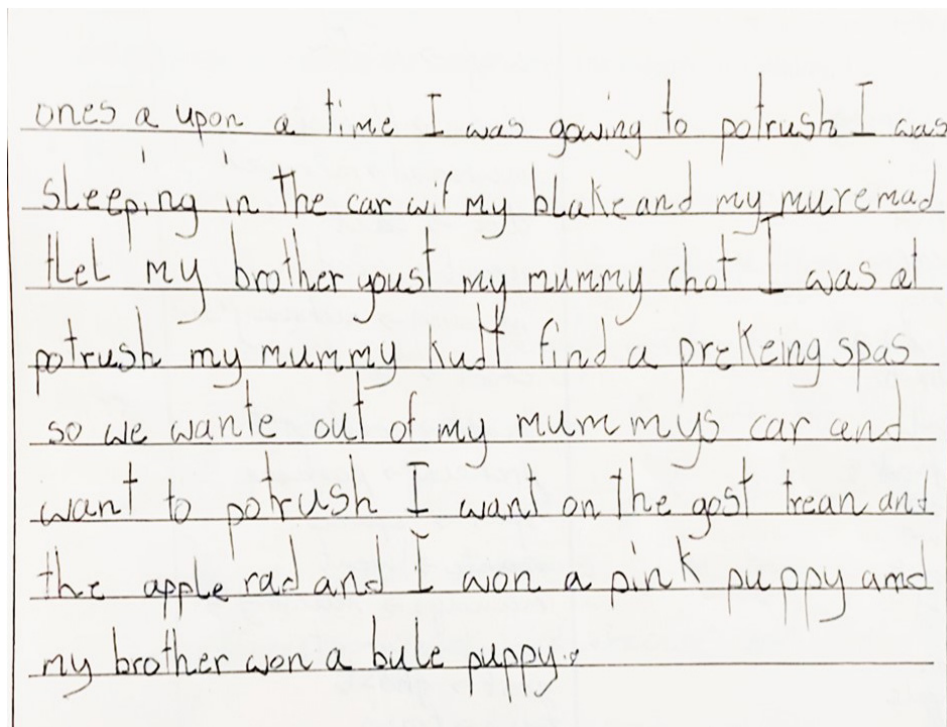 ones a upon a time I was gowing to potrush I was
sleeping in the car wif my blake and my muremad
tLet my brother youst my mummy chot I was at
potrush my mummy kudt find a prekeing spas
so we wante out of my mummys car and
want to potrush I want on the gost trean and
the apple rad and I won a pink puppy and
my brother won a bule puppy.